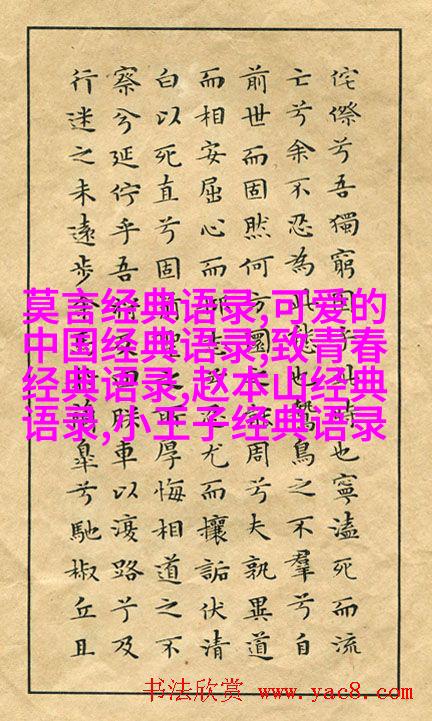 侘傺兮吾獨窮困乎此時也寧溘死而流
亡兮余不忍為此態也鷙鳥之不羣兮自
前世而固然何方圜之周兮夫孰異道
而相安屈心而抑志尤而攘詬伏清
白以死直兮固前聖之所厚悔相道之不
察兮延佇乎吾將反回朕車以復路兮及
行迷之未遠步余馬臯兮馳椒丘且
莫言经典语录,可爱的
中国经典语录,致青春
经典语录,赵本山经典
语录,小王子经典语录
书法欣赏 www.yac8.com